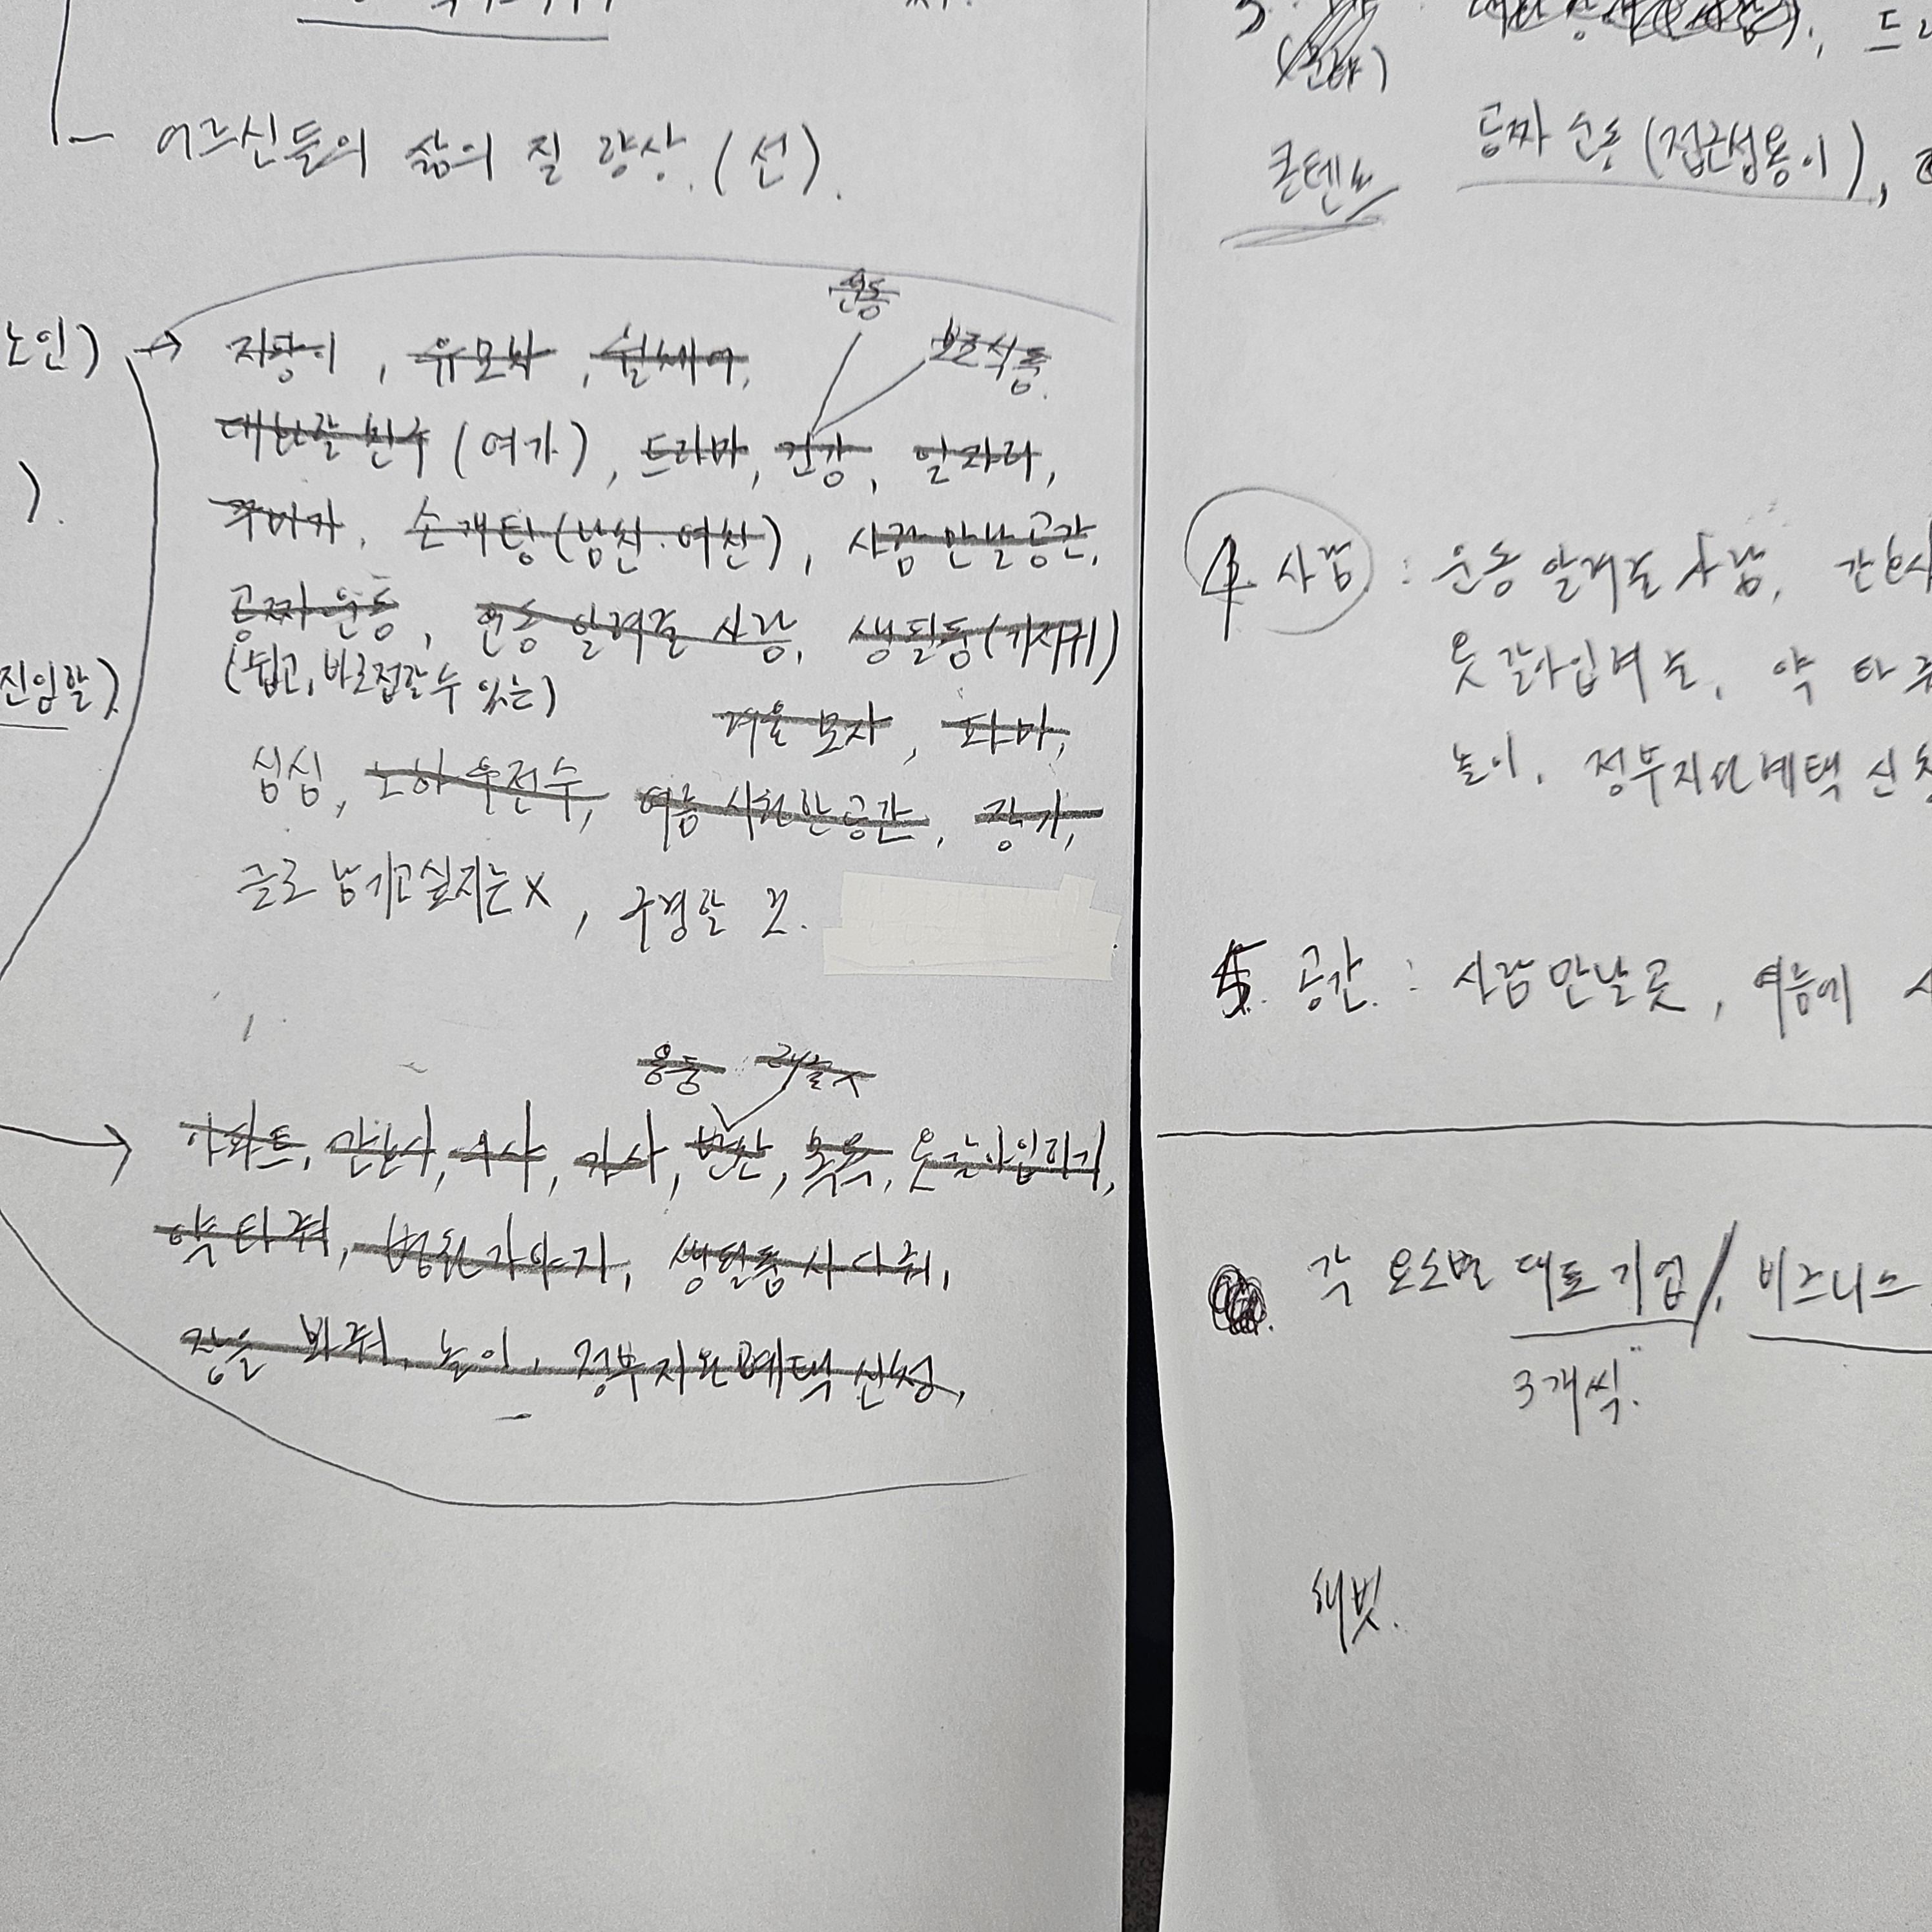 어르신들의 삶의 질 향상. (선).
운동
노인) → 지팡이, 유모차, 휠체어,
보조식품.
대화할 친구 (여가), 드라마, 건강, 일자리,
소개팅(남친·여친), 사람 만날 공간,
공짜 운동, 운동 알려줄 사람, 생필품(기저귀)
(쉽고, 바로접할수 있는)
진입할)
겨울 모자, 파마,
심심, 노하우전수, 여름 시원한 공간, 장기,
글로 남기고싶지는 X, 구경할 곳.
용품
아파트, 간호사, 의사, 감사, 반찬, 목욕, 옷갈아입히기,
약 타줘, 병원가야지, 생필품 사다줘,
놀이, 정부지원혜택 신청,
3.
콘텐츠 공짜 운동 (접근성용이),
4. 사람 : 운동 알려줄 사람,
옷 갈아입혀줄, 약 타
놀이, 정부지원혜택
5. 공간. : 사람 만날 곳, 여름에
각 요소별 대표 기업/, 비즈니스
3개씩.
해빗.